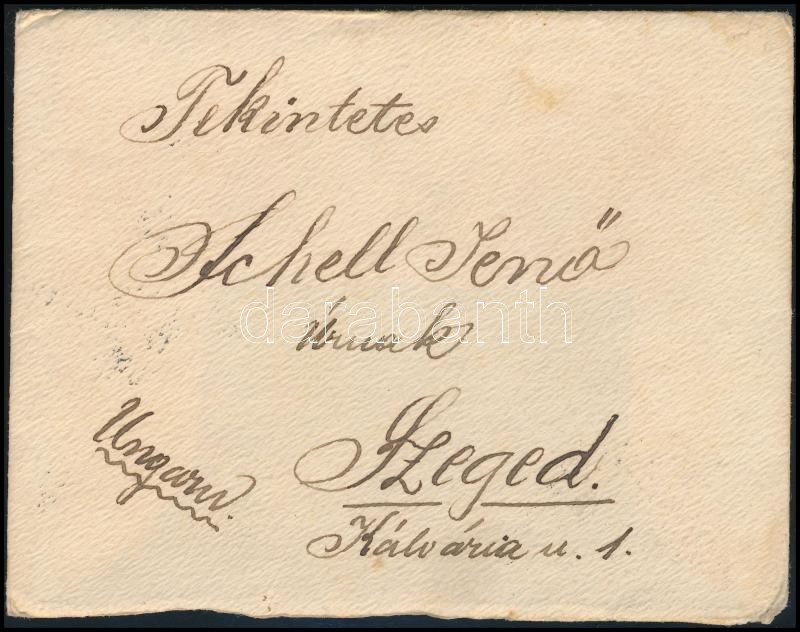 Tekintetes
Schell Jenő
Úrnak
darabanth
Ungarn.
Szeged.
Kálvária u. 1.